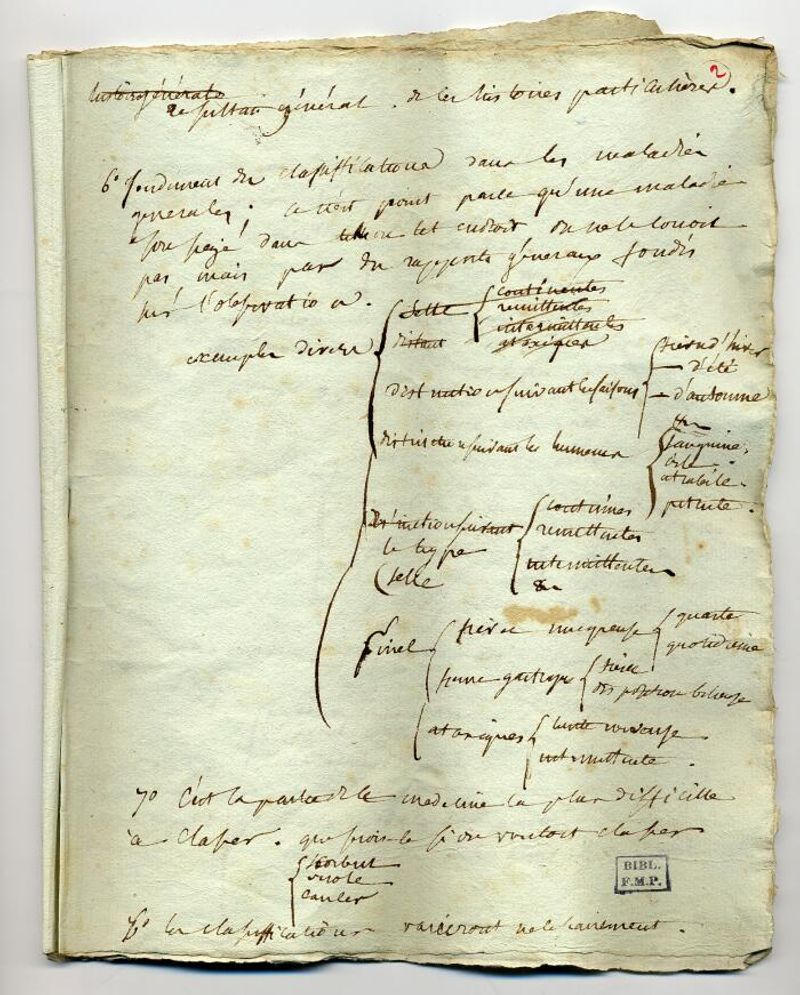 2
histoire générale
résultat général. de les histoires particulières.
6° fondement des classifications dans les maladies
generales; ce n'est point parce qu'une maladie
son siegé dans tel endroit on ne le conoit
pas mais par des rapports généraux fondés
sur l'observation.
exemples divers
selle
continentes
remittentes
intermittentes
ataxiques
distinct
distinction suivant les saisons
fievre d'hiver
— d'été
— d'automne
distinction suivant les humeurs
sanguine.
bile.
atrabile.
pituite.
Distinction suivant
le type
selle
continues
remittentes
intermittentes
&c
pinel
fievre muqueuse
quarte
quotidiene
fievre gastrique
fièvre
disposition bilieuse
ataxiques
lente nerveuse
intermittente.
7° C'est la partie de la medecine la plus difficille
à classer. que feroit-ce si on vouloit classer
scorbut
virole
cancer
8° les classifications varieront necessairement.
BIBL.
F.M.P.